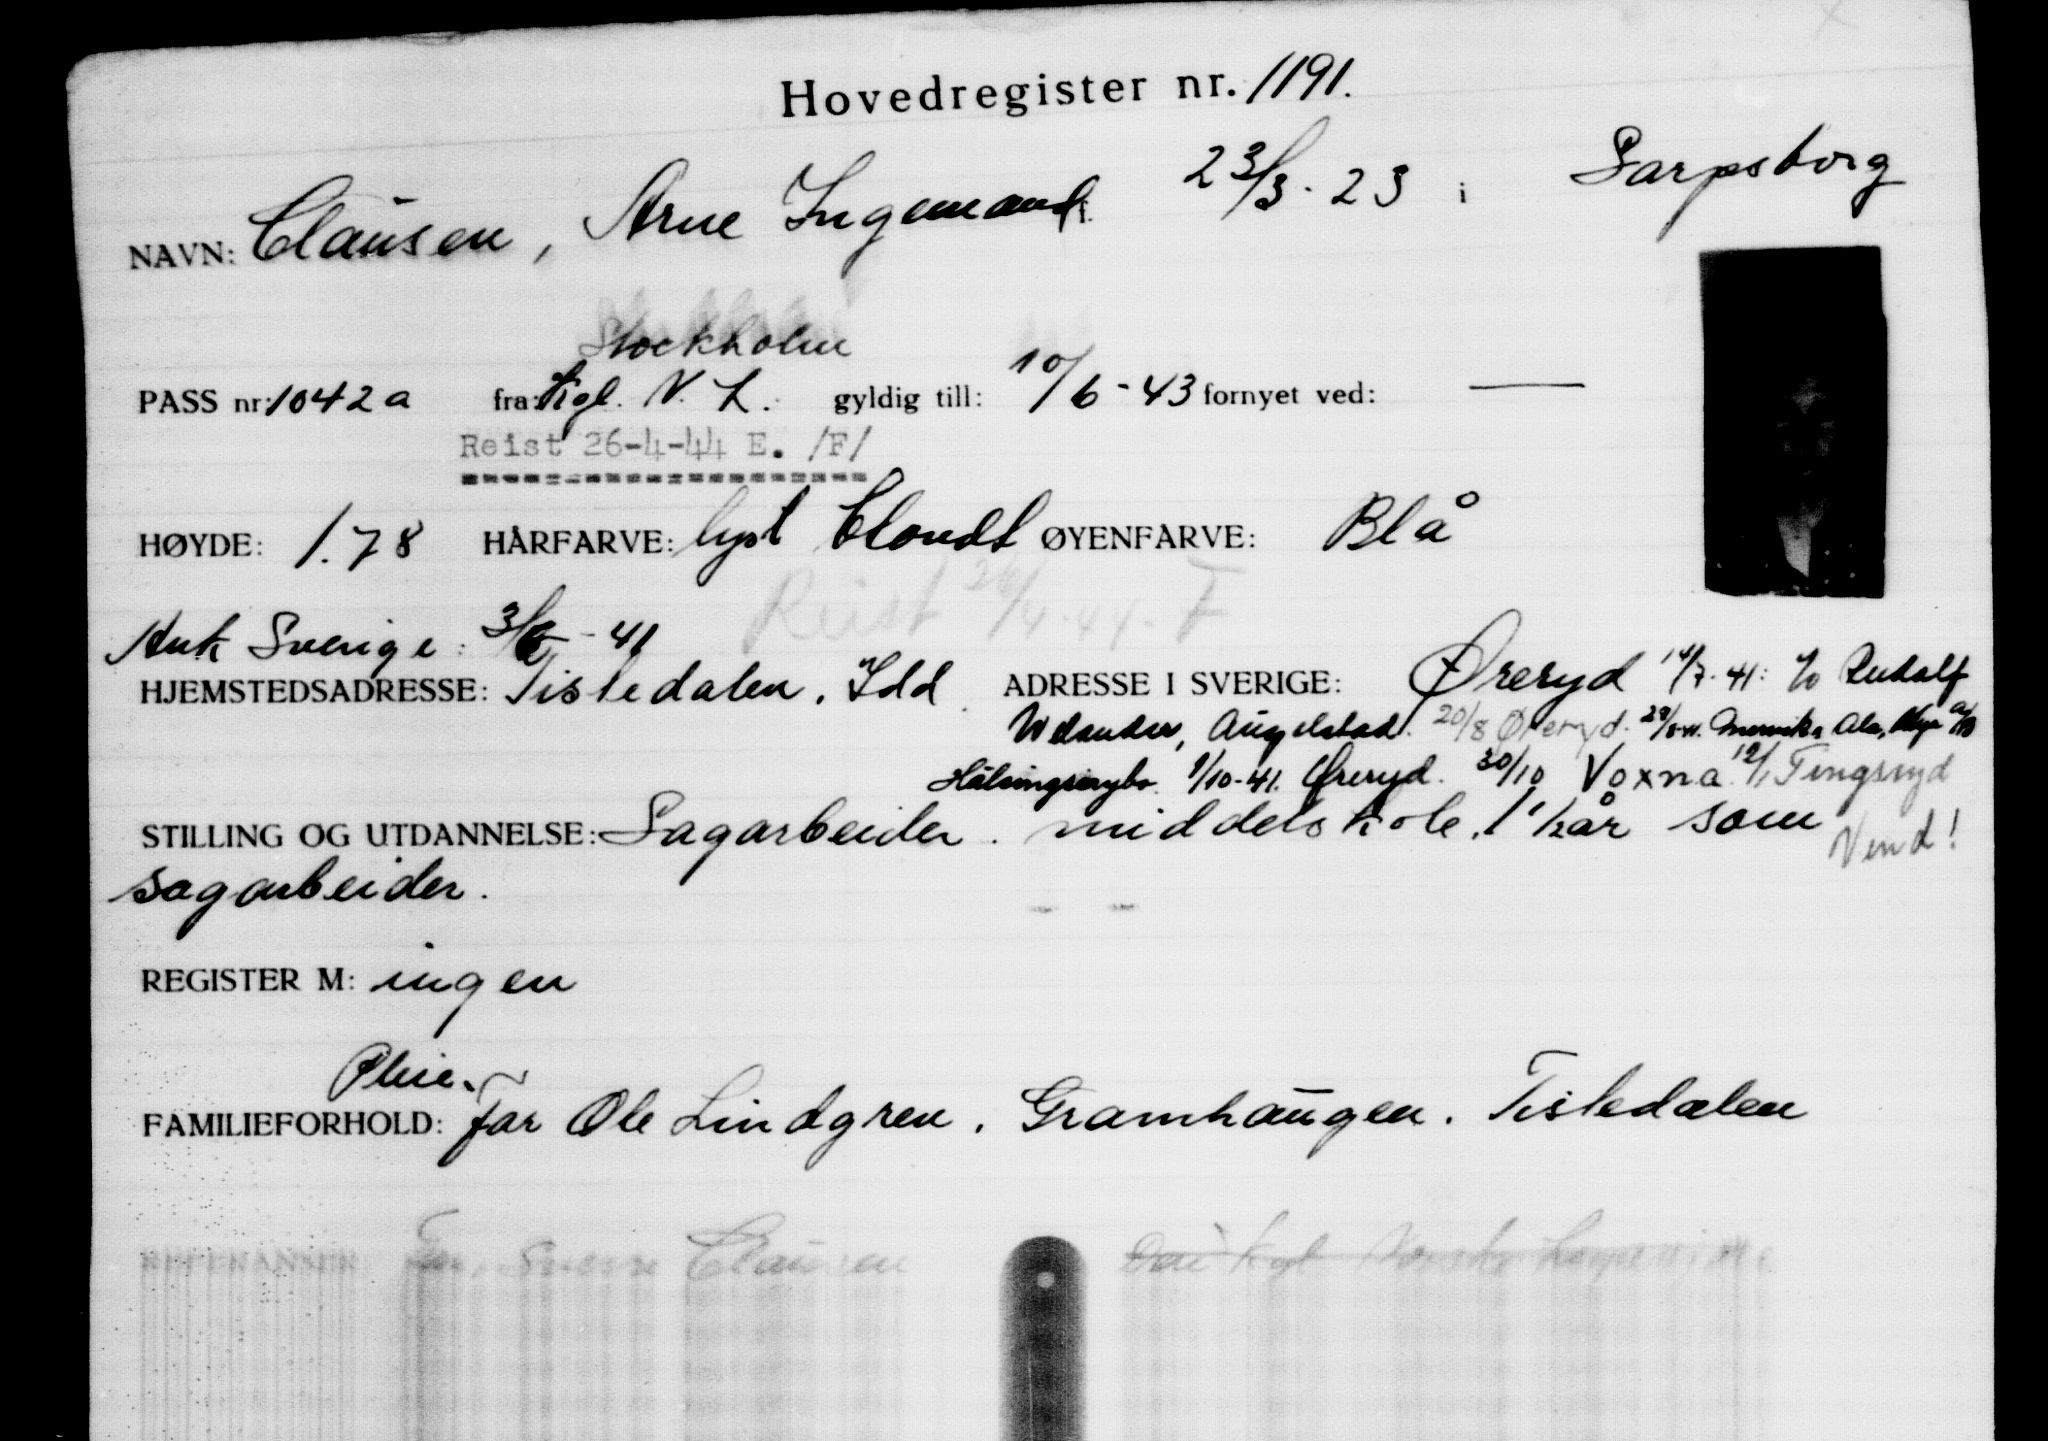 Hovedregister nr. 1191.
NAVN: Clausen, Arne Ingemand f. 23/3-23 i Sarpsborg
Stockholm
PASS nr: 1042a fra: Kgl. N. L. gyldig till: 10/6-43 fornyet ved: —
Reist 26-4-44 E. /F/
HØYDE: 1.78 HÅRFARVE: lyst blondt ØYENFARVE: Blå
Reist 26/4-44. F
Ank Sverige: 3/6-41
HJEMSTEDSADRESSE: Tistedalen, Idd ADRESSE I SVERIGE: Øreryd 14/7-41: c/o Rudolf
Welander, Augelstad. 20/8 Øreryd.
9/10-41. Øreryd. 30/10 Voxna 12/1 Tingsryd
STILLING OG UTDANNELSE: Sagarbeider. middelskole, 1 1/2 år som Vend!
sagarbeider.
REGISTER M: ingen
Pleie.
FAMILIEFORHOLD: far Ole Lindgren. Gramhaugen. Tistedalen
REFERANSER: Sverre Clausen Det kgl Norske